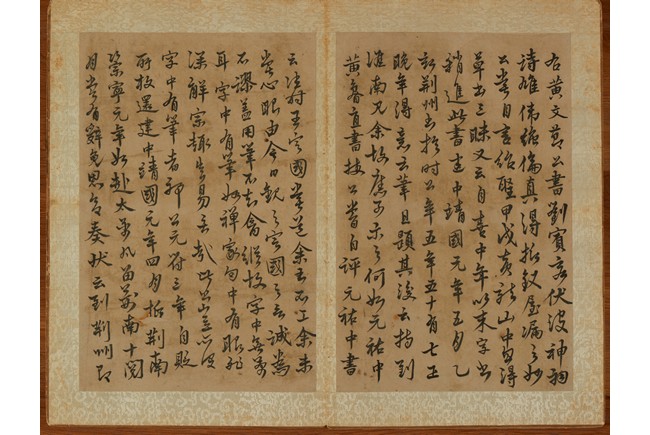 右黄文莭公書劉賓客伏波神祠
詩雄偉絶倫真得折釵屋漏之妙
公嘗自言紹聖甲戌黄龍山中忽得
草書三昧又云自喜中年以來字書
稍進此書建中靖國元年五月乙
亥荊州書於時公年五十有七正
晚年得意之筆且題其後云持到
淮南見余故舊可示之何如元祐中
黄魯直書按公嘗自評元祐中書
云往時王定國嘗道余書不工余未
嘗心服由今日觀之定國之言誠為
不謬盖用筆不知擒縱故字中無筆
耳字中有筆如禪家句中有眼非
深解宗趣豈易言哉此豈所謂
字中有筆者耶公元符三年自貶
所放還建中靖國元年四月抵荊南
崇寧元年始赴太平凡留荊南十閱
月嘗有辭免恩命奏狀云到荊州即